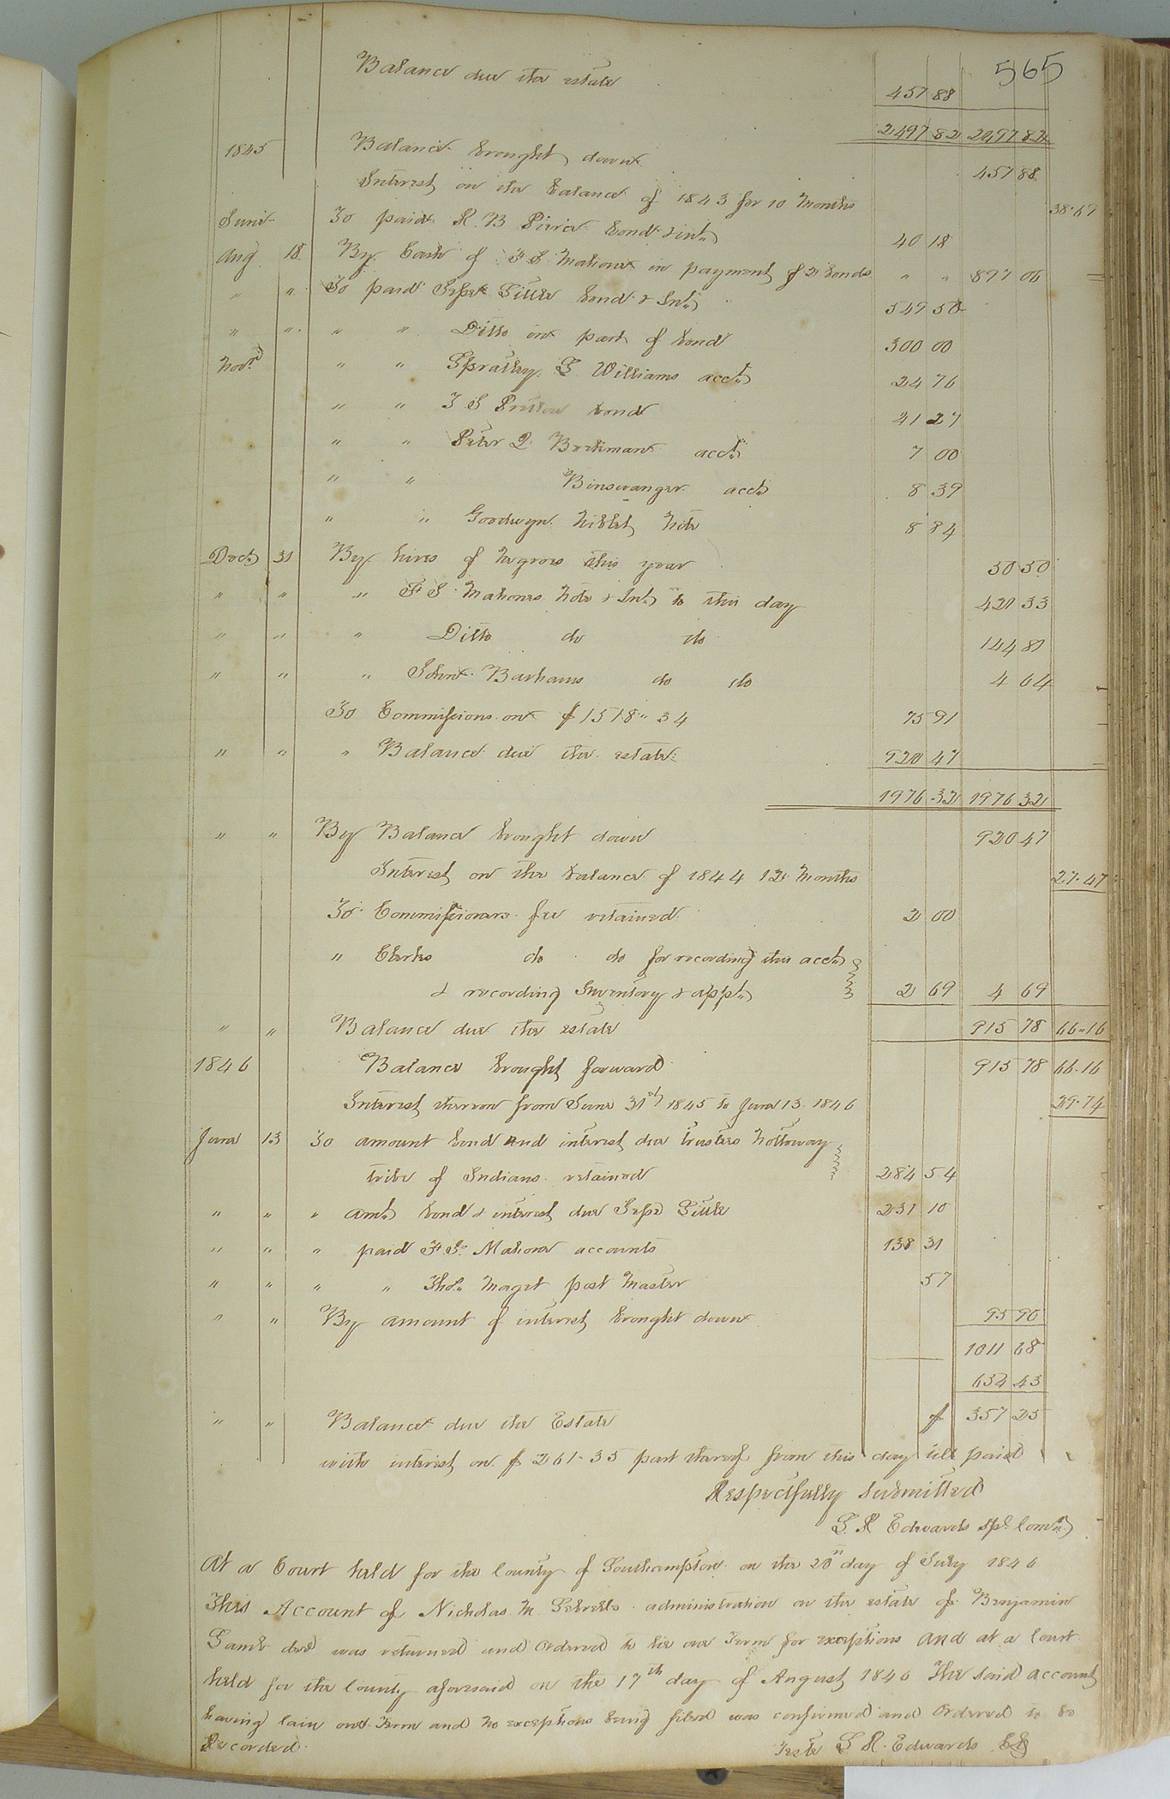 565
Balance due the estate 457 88
2497 82 2497 82
1845 Balance brought down 457 88
Interest on the balance of 1843 for 10 Months 38.69
June To paid R. B bond & int. 40 18
Aug 18 By Cash of F S Mahone in payment of 2 bonds " " 897 06
" " To paid Little bond & Int. 549 50
" " " " Ditto in part of bond 300 00
Nov. " " Spratley L Williams acct. 24 76
" " J S bond 41 27
" " Peter acct. 7 00
" " Binswanger acct 8 39
" " Goodwyn Niblet Note 8 84
Dec. 31 By hires of Negroes this year 50 50
" " " F S Mahones Note & Int. to this day 420 33
" " " Ditto do do 144 81
" " " John Barhams do do 4 64
To Commissions on $1518 " 34 75 91
" " " Balance due the estate 920 47
1976 32 1976 32
" " By Balance brought down 920 47
Interest on the balance of 1844 12 Months 27.47
To Commissioners fee retained 2 00
" Clerks do do for recording this acct.
& recording Inventory & appt. 2 69 4 69
" " Balance due the estate 915 78 66-16
1846 Balance brought forward 915 78 66.16
Interest thereon from 31st 1845 to June 13. 1846 29.74
June 13 To amount bond and interest due trustees Nottoway
tribe of Indians retained 284 54
" " " amt. bond & interest due Little 231 10
" " " paid F S. Mahone accounts 138 31
" " " " Tho. Maget post Master 57
" " By amount of interest brought down 95 90
1011 68
654 43
" " Balance due the Estate $ 357 25
with interest on $261-35 part thereof from this day till paid
Respectfully Submitted
L R Edwards Spl. Com.
At a Court held for the County of Southampton on the 20th day of July 1846
This Account of Nicholas M administration on the estate of Benjamin
Lamb decd was returned and Ordered to lie one Term for exceptions and at a Court
held for the County aforesaid on the 17th day of August 1846 The said account
having lain one Term and no exceptions being filed was confirmed and Ordered to be
Recorded. Teste L R. Edwards